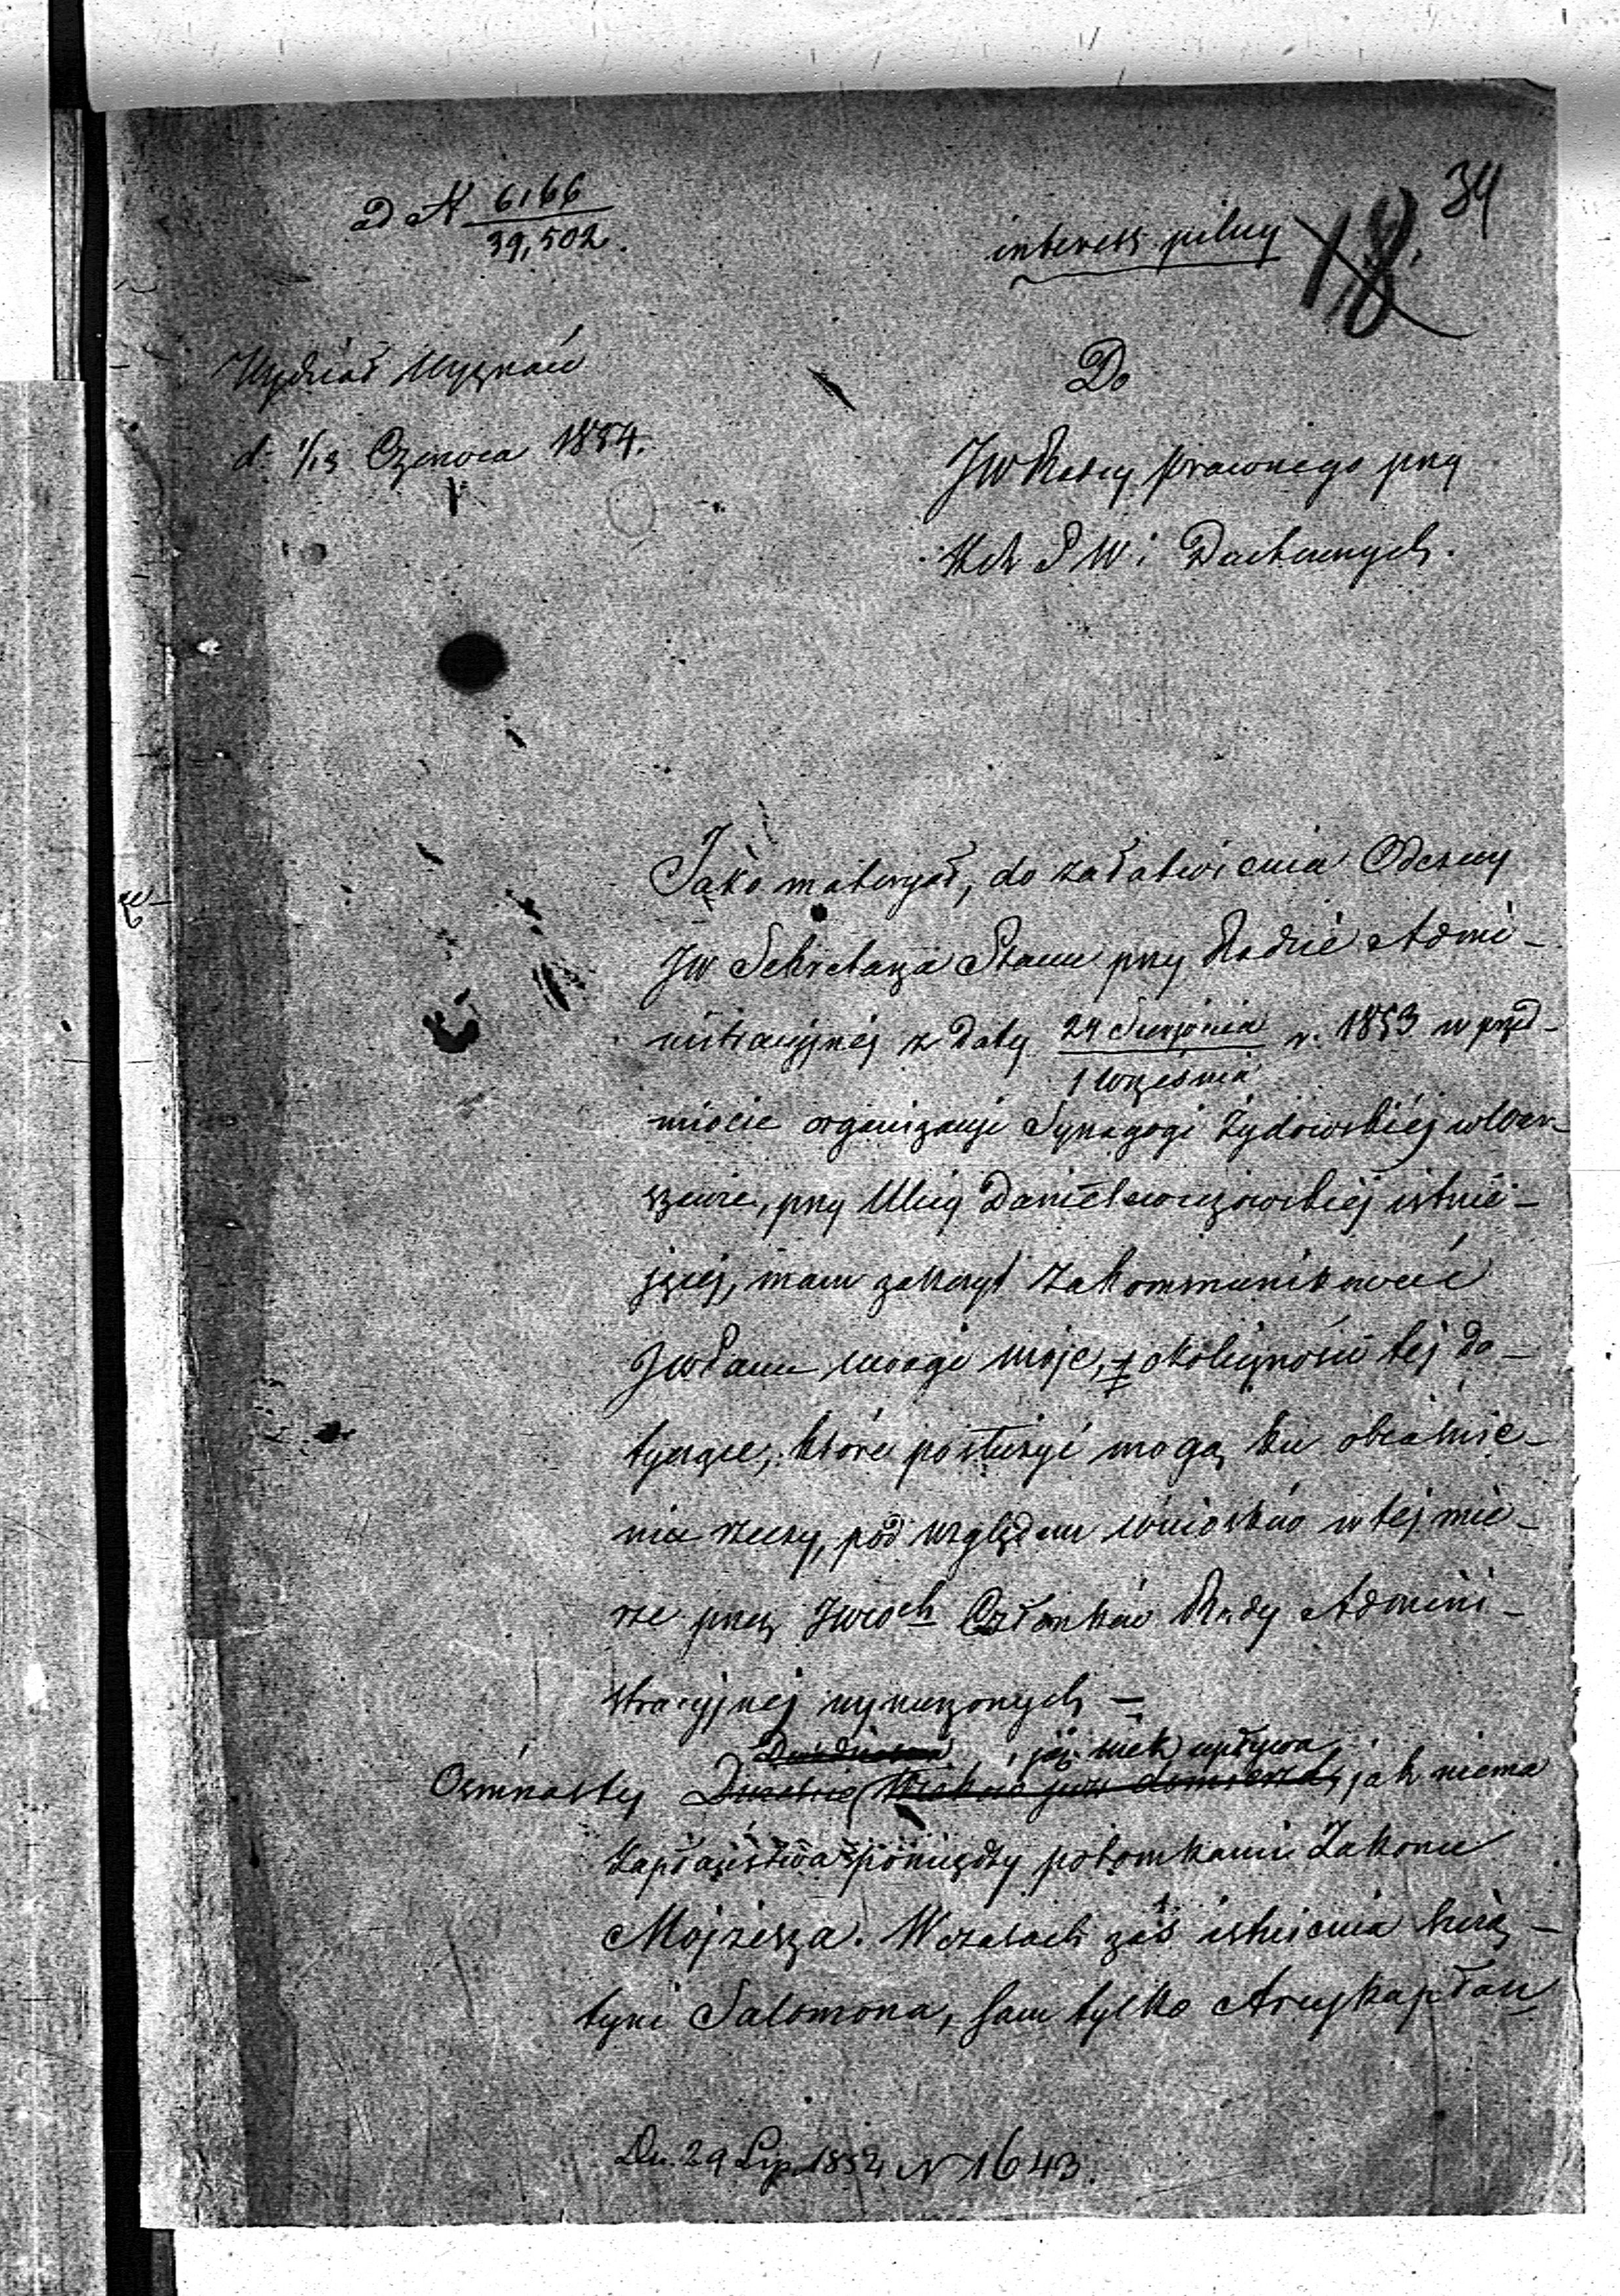 34
18.
ad N 6166
39,502.
interess pilny
Wydział Wyznań
d. 1/13 Czerwca 1854.
Do
JW Radcy prawnego przy
S W i Duchownych.
Jako materyał, do załatwienia Odezwy
JW Sekretarza Stanu przy Radzie Admi-
nistracyjnej z daty 24 Sierpnia r. 1853 w przed-
1 Września
miocie organizacyi Synagogi Żydowskiéj w War-
szawie, przy Ulicy Danielewiczowskiéj istnie-
jącej, mam zaszczyt zakommunikować
JW Panu uwagi moje, okoliczności tej do-
tyczące, które posłużyć mogą ku objaśnie-
niu rzeczy, pod względem wniosków w tej mie-
rze przez JWW Członków Rady Admini-
stracyjnej wynurzonych —
już wiek upływa
Ośmnasty jak niema
kapłaństwa pomiędzy potomkami Zakonu
Mojżesza. W czasach zaś istnienia świą-
tyni Salomona, sam tylko Arcykapłan
Dn. 29 Lip. 1854 N 1643.